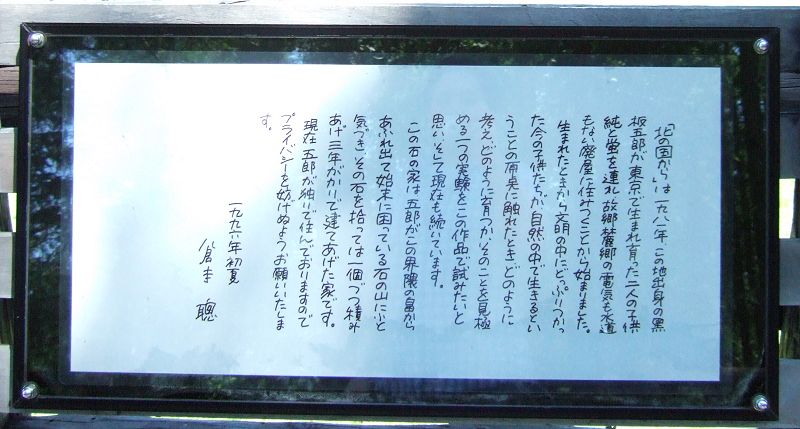 「北の国から」は一九八一年、この地出身の黒
板五郎が東京で生まれ育った二人の子供
純と蛍を連れ故郷麓郷の電気も水道
もない廃屋に住みつくことから始まりました。
生まれたときから文明の中にどっぷりつかっ
た今の子供たちが自然の中で生きるとい
うことの原点に触れたときどのように
考え、どのように育つか、そのことを見極
める一つの実験をこの作品で試みたいと
思い、そして現在も続いています。
この石の家は五郎がこの界隈の畠から
あふれ出て始末に困っている石の山にふと
気づき、その石を拾っては一個づつ積み
あげ三年がかりで建てあげた家です。
現在五郎が独りで住んでおりますので
プライバシーを妨げぬようお願いいたしま
す。
一九九六年初夏
倉本 聰